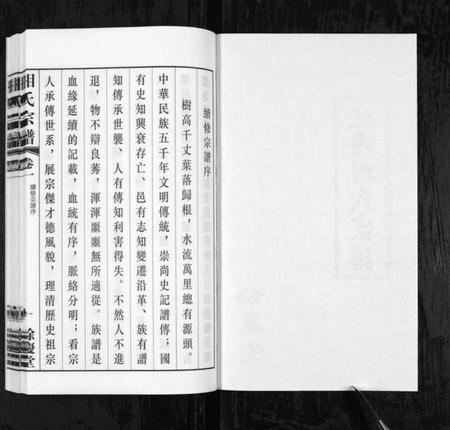 續修宗譜序
樹高千丈葉落歸根，水流萬里總有源頭。
中華民族五千年文明傳統，崇尚史記譜傳；國
有史知興衰存亡、邑有志知變遷沿革、族有譜
知傳承世襲、人有傳知利害得失。不然人不進
退，物不辯良莠，渾渾噩噩無所適從。族譜是
血緣延續的記載，血統有序，脈絡分明；看宗
人承傳世系，展宗傑才德風貌，理清歷史祖宗
相氏宗譜
卷一
續修宗譜序
一
餘慶堂